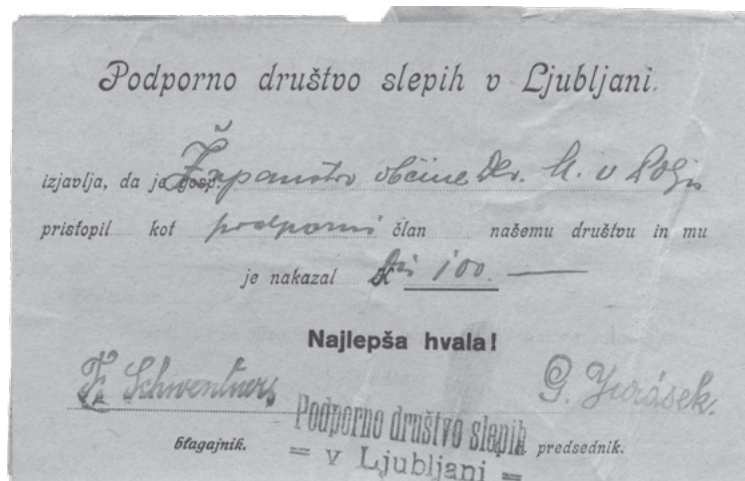 Podporno društvo slepih v Ljubljani.
izjavlja, da je gosp. Županstvo občine Dev. M. v Polju
pristopil kot podporni član našemu društvu in mu
je nakazal K Din 100.—
Najlepša hvala!
F. Schwentner G. Jurásek.
Podporno društvo slepih
blagajnik. predsednik.
= v Ljubljani =